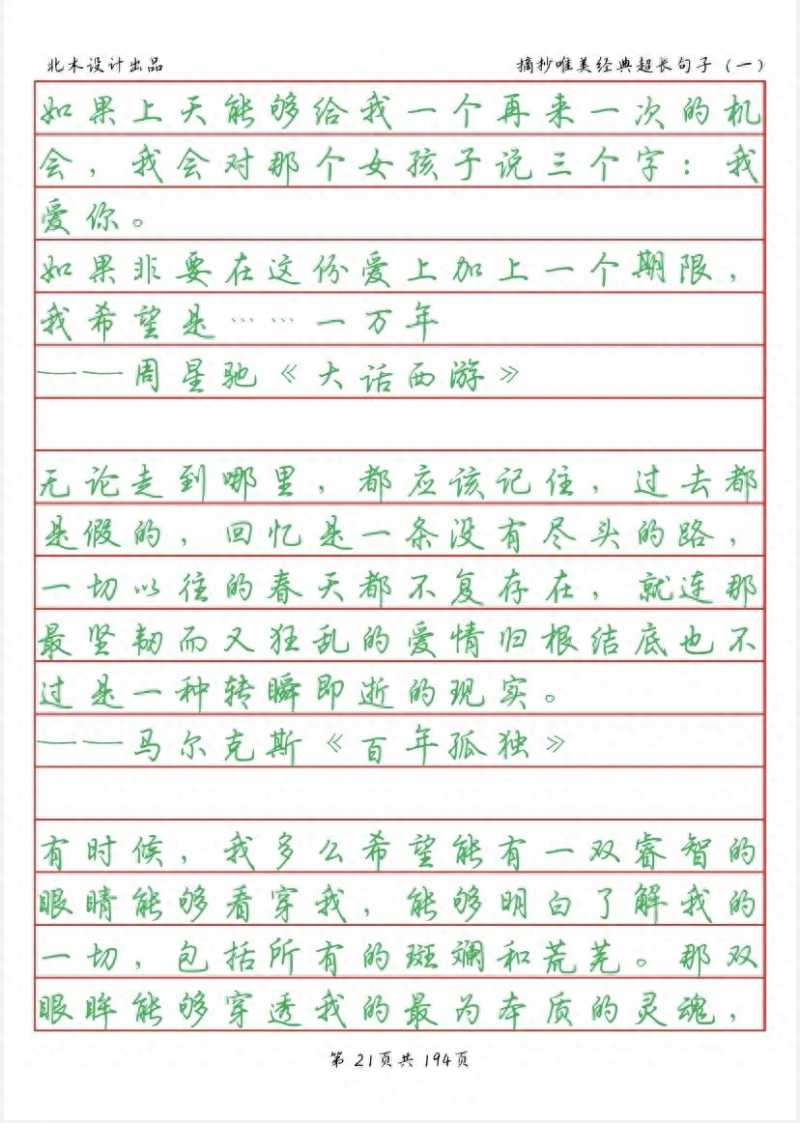 北木设计出品
摘抄唯美经典超长句子（一）
如果上天能够给我一个再来一次的机
会，我会对那个女孩子说三个字：我
爱你。
如果非要在这份爱上加上一个期限，
我希望是……一万年
——周星驰《大话西游》
无论走到哪里，都应该记住，过去都
是假的，回忆是一条没有尽头的路，
一切以往的春天都不复存在，就连那
最坚韧而又狂乱的爱情归根结底也不
过是一种转瞬即逝的现实。
——马尔克斯《百年孤独》
有时候，我多么希望能有一双睿智的
眼睛能够看穿我，能够明白了解我的
一切，包括所有的斑斓和荒芜。那双
眼眸能够穿透我的最为本质的灵魂，
第 21页共 194页